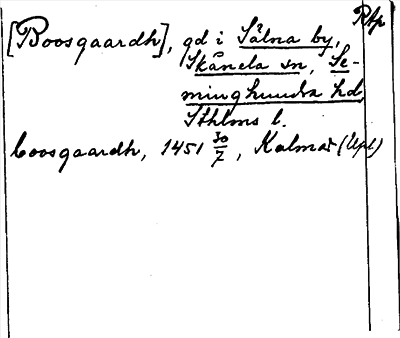 Rtp
[Boosgaardh], gd i Sälna by,
Skånela sn, Se-
minghundra hd,
Sthlms l.
boosgaardh, 1451 30/7, Kalmar (Upl)